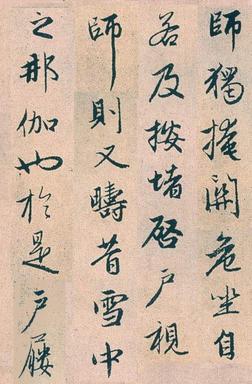 師獨掩關危坐自
若及按堵啓戶視
師則又疇昔雪中
之那伽也於是戶屨